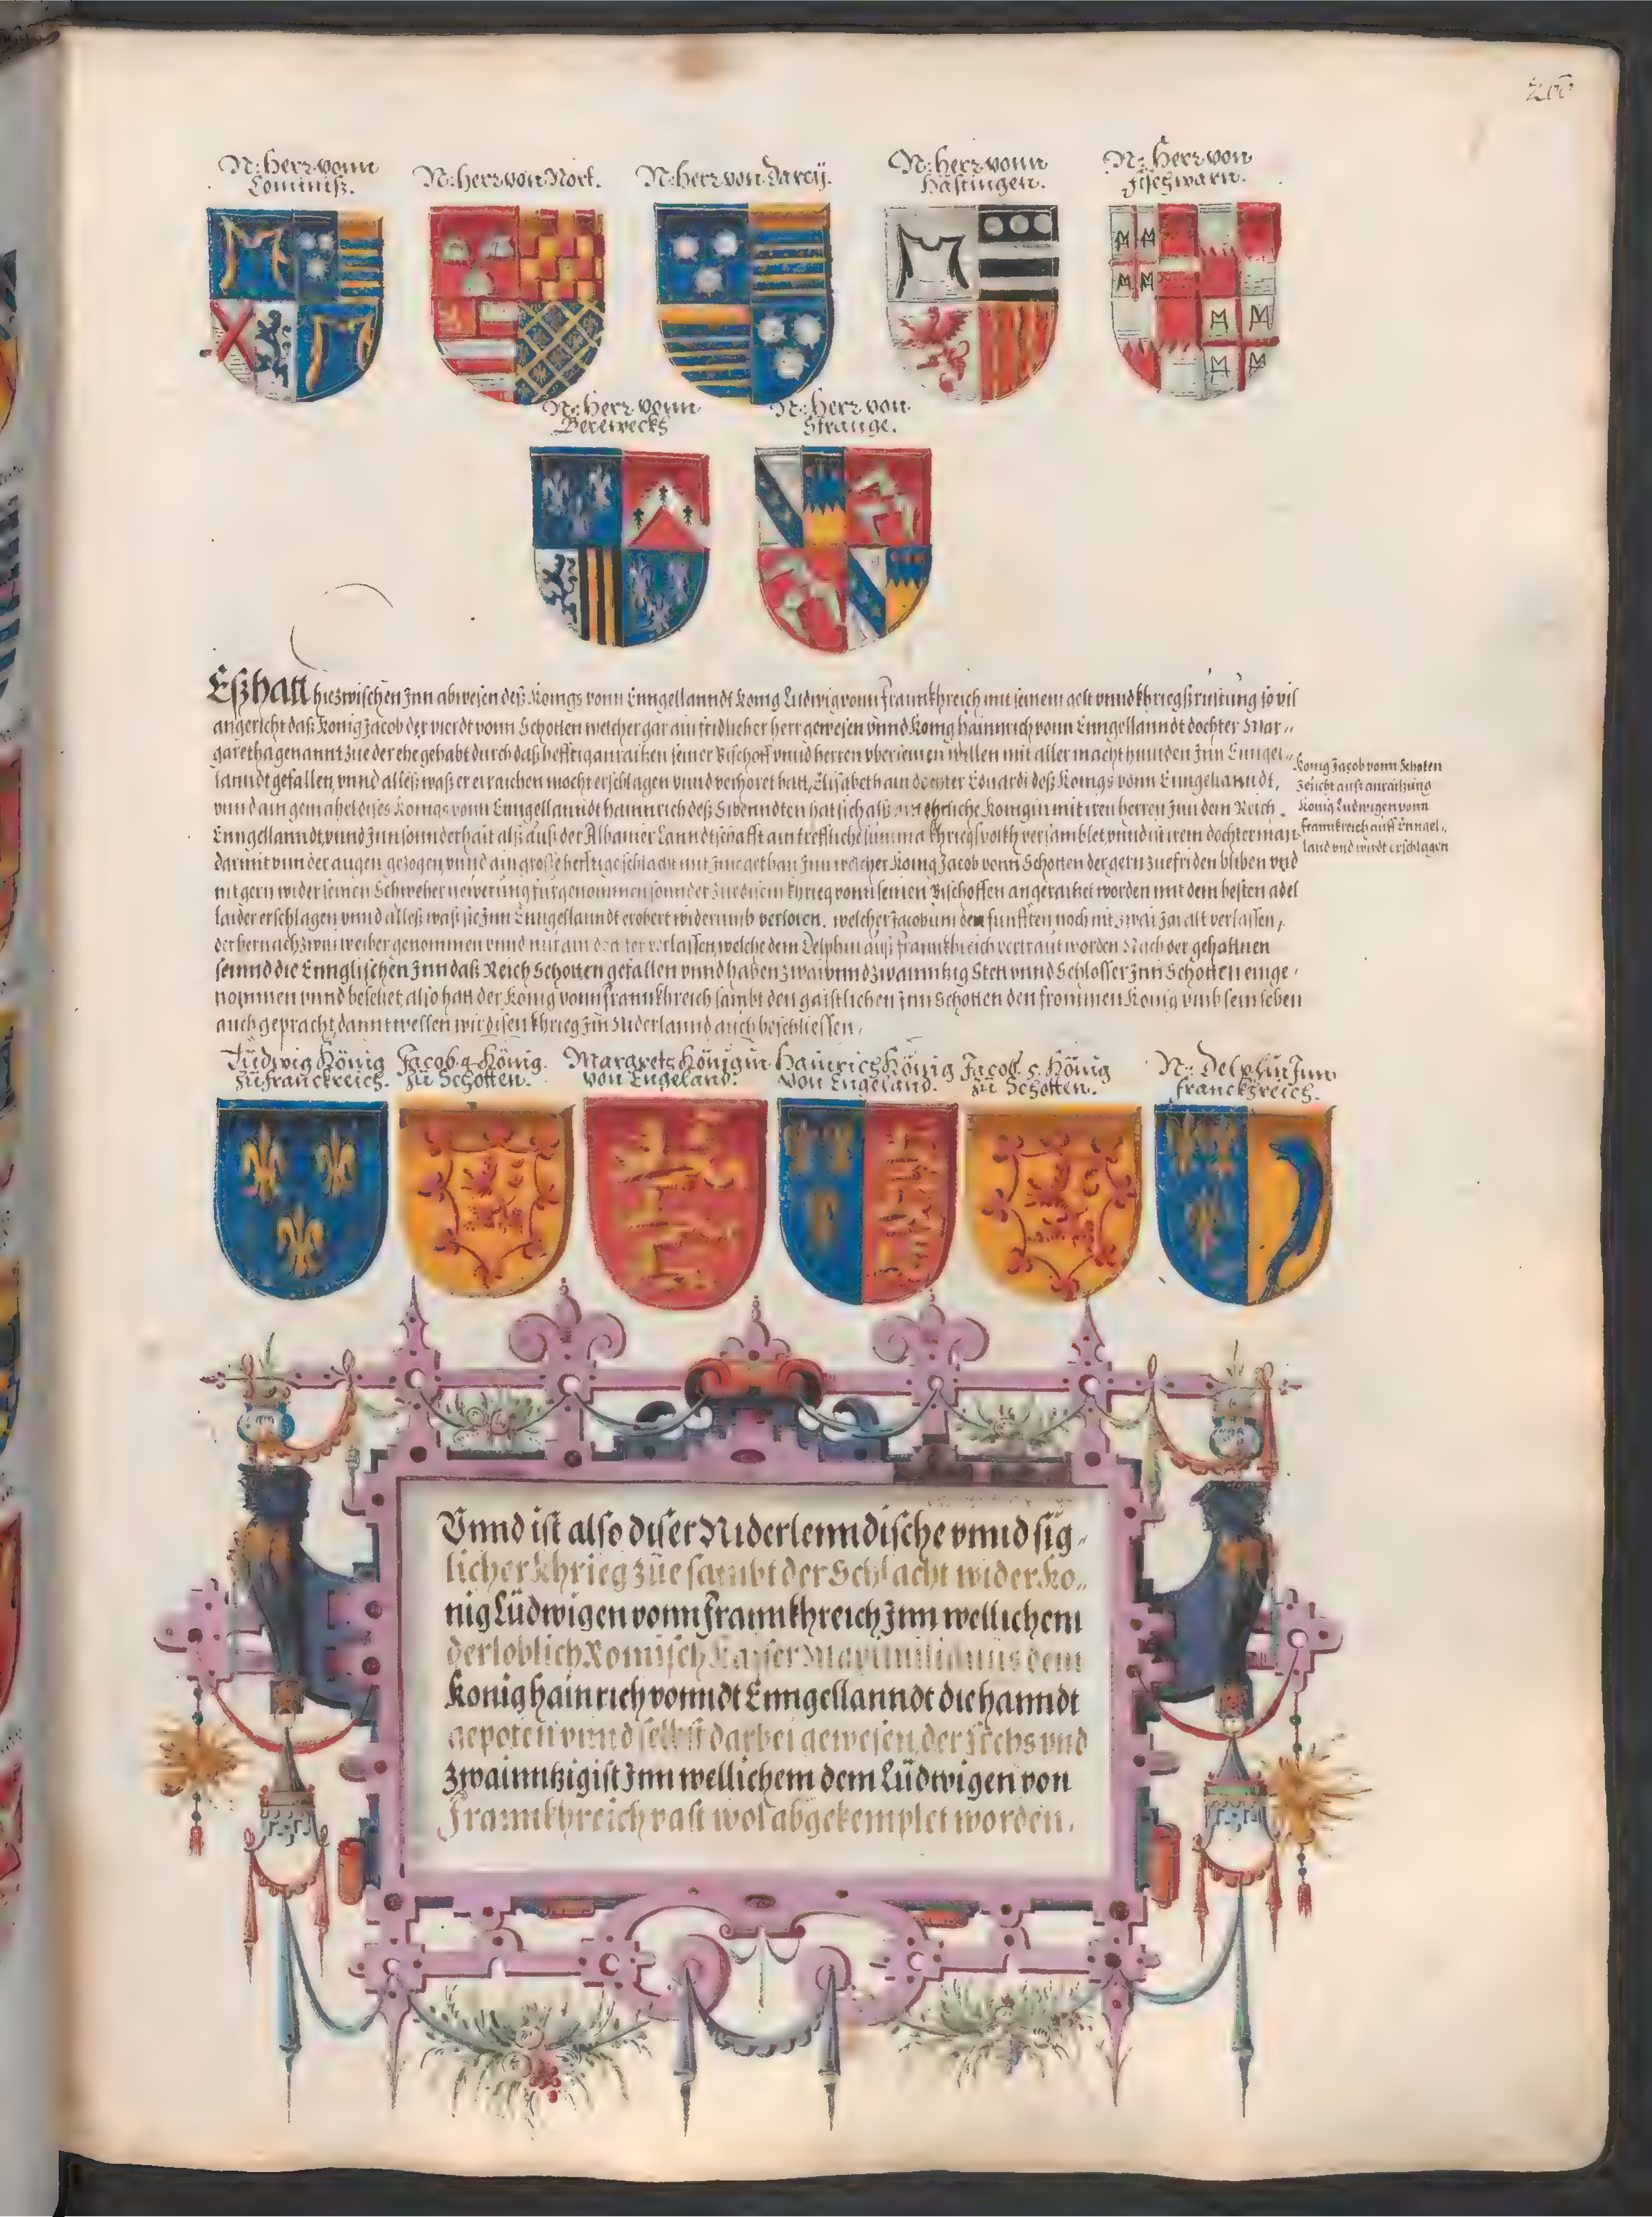 N: Herr vonn
Cominiß.
N: Herr von Nort.
N: Herr von Darcÿ.
N: Herr vonn
Hastingen.
N: Herr von
fischwarn.
N: Herr vonn
Berewecks
N: Herr von
Strange.
Eßhatt hiezwischen Inn abwesen deß Konigs vonn Enngellanndt Konig Ludwig vonn Frannkhreich mit seinem gelt vnnd khriegßrüstung so vil
angericht daß Konig Jacob der vierdt vonn Schotten welcher gar ain fridlicher herr gewesen vnnd Konig hainnrich vonn Enngellanndt dochter Mar„
garetha genannt zue der ehe gehabt durch daß hefftig anraitzen seiner Bischoff vnnd herren vber seinen willen mit aller macht hinnden Inn Enngel„
lanndt gefallen, vnnd alleß waß er eraichen mocht erschlagen vnnd verhöret hatt, Elisabeth ain dochter Eduardi deß Konigs vonn Enngellanndt,
vnnd ain gemahel dises Konigs vonn Enngellanndt hainnrich deß Sibenndten hat sich alß ehrliche Konigin mit iren herren Inn dem Reich
Enngellanndt vnnd Inn sonnderhait alß auß der Albanier Lanndtschafft ain treffliche summa khriegsvolkh versamblet vnnd ist irem dochterman
darmit vnnder augen gezogen, vnnd ain große hefftige schlacht mit Ime gethan Inn welcher Konig Jacob vonn Schotten der gern zue friden bliben vnd
nit gern wider seinen Schweher newerung fürgenommen sonnder zue disem khrieg vonn seinen Bischoffen angeraitzet worden mit dem besten adel
laider erschlagen vnnd alleß waß sie Inn Enngellanndt erobert widerumb verloren. welcher Jacobum den funfften noch nit zwai Jar alt verlassen,
der hernach zwai weiber genommen vnnd nur ain dochter verlassen, welche dem Delphin auß Frannkhreich vertraut worden Nach der gehalttnen
seinnd die Ennglischen Inn daß Reich Schotten gefallen vnnd haben zwaivnndzwainntzig Stett vnnd Schlosser Inn Schotten einge„
nommen vnnd besetzet, also hatt der Konig vonn Frannkhreich sambt den gaistlichen Inn Schotten den frommen Konig vmb sein leben
auch gepracht, dannt wellen wir disen khrieg Im Niderlannd auch beschliessen.
Konig Jacob vonn Schoten
Zeücht auß anraitzung
Konig Ludwigen vonn
Frannkreich auff Enngel„
land vnd wirdt erschlagen
Ludwig König
zü franckreich.
Jacob. 4. König.
zü Schotten.
Margrets Königin
von Engeland.
Hainrich König
von Engeland.
Jacob. 5. König
zü Schotten.
N: Delphin Jnn
franckhreich.
Vnnd ist also diser Niderlenndische vnnd sig„
licher Khrieg züe sambt der Schlacht wider Ko„
nig Lüdwigen vonn Frannkhreich Inn wellichem
der loblich Romisch Kayser Maximilianüs dem
Konig hainrich vonndt Enngellanndt die hanndt
gepoten vnnd selbst darbei gewesen, der Sechs vnd
zwainntzigist Inn wellichem dem Lüdwigen von
Frannkhreich vast wol abgekemplet worden.